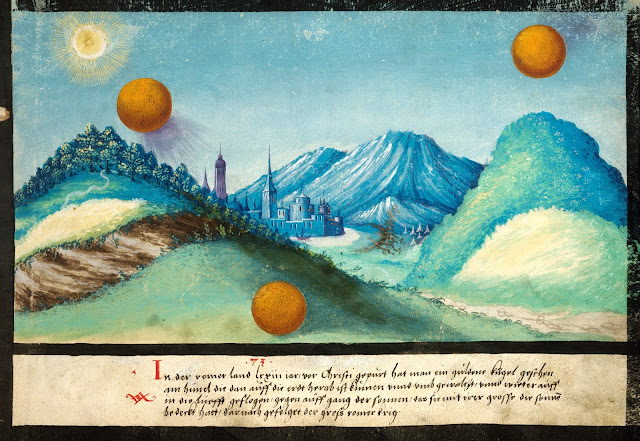 73
In der romer land lxxiii iar vor Christi gepurt hat man ein guldene kugel gesehen
am himel die dan auff die erdt herab ist kumen vnnd vmb gewalgt vnnd wider auff
in die lufft geflogen gegen auff gang der sonnen das sie mit irer grosse die sonne
bedeckt hatt dar nach gefolget der gross romer krig